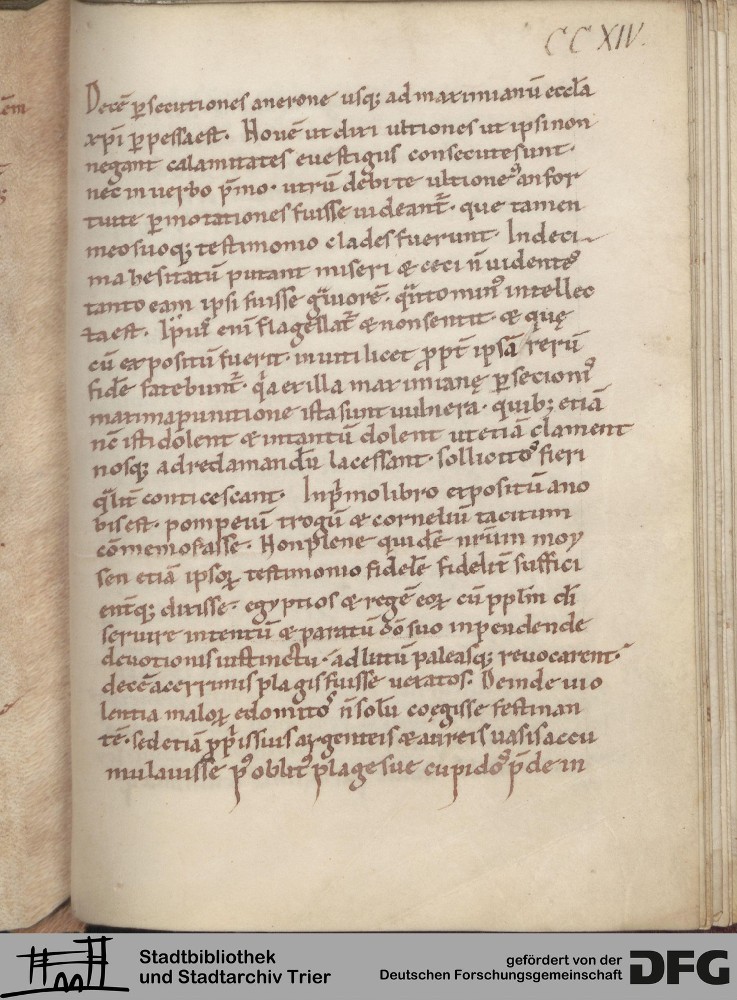 CCXIV.
Decē p̄secutiones anerone usq; ad maximianū eccl̄a
xp̄i p̄pessaest. Novē ut dixi ultiones ut ipsi non
negant calamitates evestigiis consecutesunt.
nec̄ in verbo p̄mo. utrū debite ultiones an for
tuite p̄motationes fuisse uideant̄. que tamen
meo suoq; testimonio clades fuerunt. In deci
ma hesitatū putant miseri & ceci n̄ videntes
tanto eam ipsi fuisse gͣviorē. qͣnto minus intellec
ta est. Ipius enī flagellat̄ & non sentit. & quę
cū expositū fuerit. inviti licet ꝓpt̄ ipsā rerū
fidē fatebunt̄. qͥa ex illa maximianę p̄secionis
maxima punitione ista sunt vulnera. quib; etiā
nc̄ isti dolent & in tantū dolent ut etiā clament
nosq; ad reclamandū lacessant. sollicitos fieri
qͣlit̄ conticescant. In pͥmo libro expositū ano
bis est. pompeiū trogū & corneliū tacitum
cōmemorasse. Non plene quidē nr̄um moy
sen etiā ipsoꝝ testimonio fidelē fidelit̄ suffici
ent̄q; dixisse. egyptios & regē eoꝝ cū ppl̄m d̄i
servire intentū & paratū dō suo inpendende
devotionis instinctu. ad lutū paleasq; revocarent.
decē acerrimis plagis fuisse vexatos. Deinde vio
lentia maloꝝ edomitos n̄ solū coęgisse festinan
tē. sed etiā ꝓpͥis suis argenteis & aureis vasis accu
mulavisse pͦ oblitͦ plage sue cupidos p̄de in
Stadtbibliothek
und Stadtarchiv Trier
gefördert von der
Deutschen Forschungsgemeinschaft
DFG